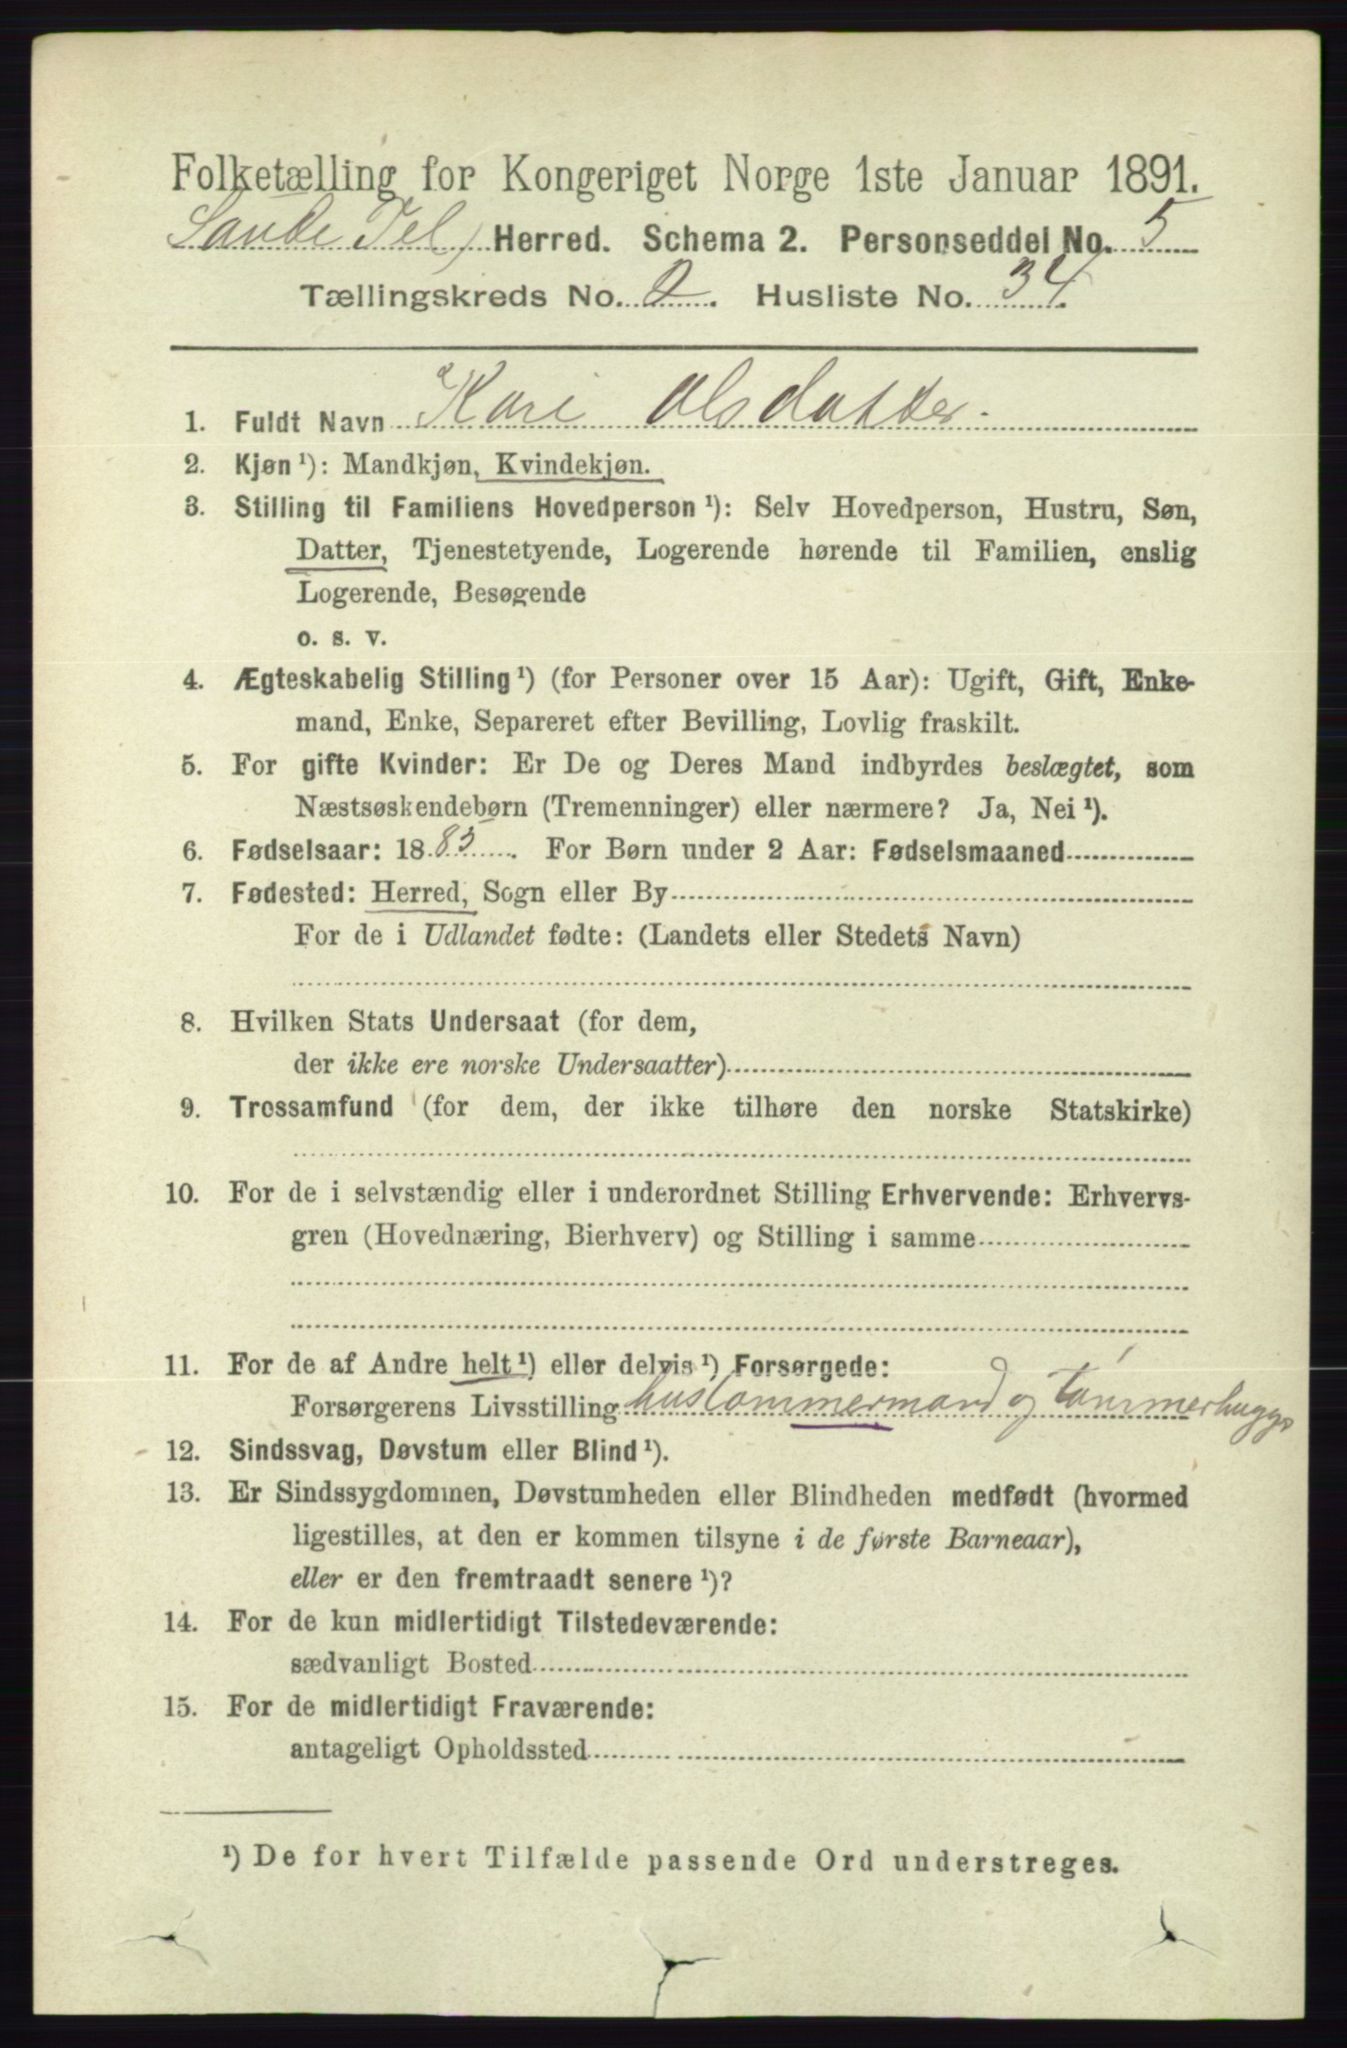 Folketælling for Kongeriget Norge 1ste Januar 1891.
Saude Tel) Herred. Schema 2. Personseddel No. 5
Tællingskreds No. 2. Husliste No. 34.
1. Fuldt Navn Kari Olsdatter.
2. Kjøn ¹): Mandkjøn, Kvindekjøn.
3. Stilling til Familiens Hovedperson ¹): Selv Hovedperson, Hustru, Søn,
Datter, Tjenestetyende, Logerende hørende til Familien, enslig
Logerende, Besøgende
o. s. v.
4. Ægteskabelig Stilling ¹) (for Personer over 15 Aar): Ugift, Gift, Enke-
mand, Enke, Separeret efter Bevilling, Lovlig fraskilt.
5. For gifte Kvinder: Er De og Deres Mand indbyrdes beslægtet, som
Næstsøskendebørn (Tremenninger) eller nærmere? Ja, Nei ¹).
6. Fødselsaar: 1883. For Børn under 2 Aar: Fødselsmaaned
7. Fødested: Herred, Sogn eller By
For de i Udlandet fødte: (Landets eller Stedets Navn)
8. Hvilken Stats Undersaat (for dem,
der ikke ere norske Undersaatter)
9. Trossamfund (for dem, der ikke tilhøre den norske Statskirke)
10. For de i selvstændig eller i underordnet Stilling Erhvervende: Erhvervs-
gren (Hovednæring, Bierhverv) og Stilling i samme
11. For de af Andre helt ¹) eller delvis ¹) Forsørgede:
Forsørgerens Livsstilling hustømmermand og Tømmerhugge
12. Sindssvag, Døvstum eller Blind ¹).
13. Er Sindssygdommen, Døvstumheden eller Blindheden medfødt (hvormed
ligestilles, at den er kommen tilsyne i de første Barneaar),
eller er den fremtraadt senere ¹)?
14. For de kun midlertidigt Tilstedeværende:
sædvanligt Bosted
15. For de midlertidigt Fraværende:
antageligt Opholdssted
¹) De for hvert Tilfælde passende Ord understreges.